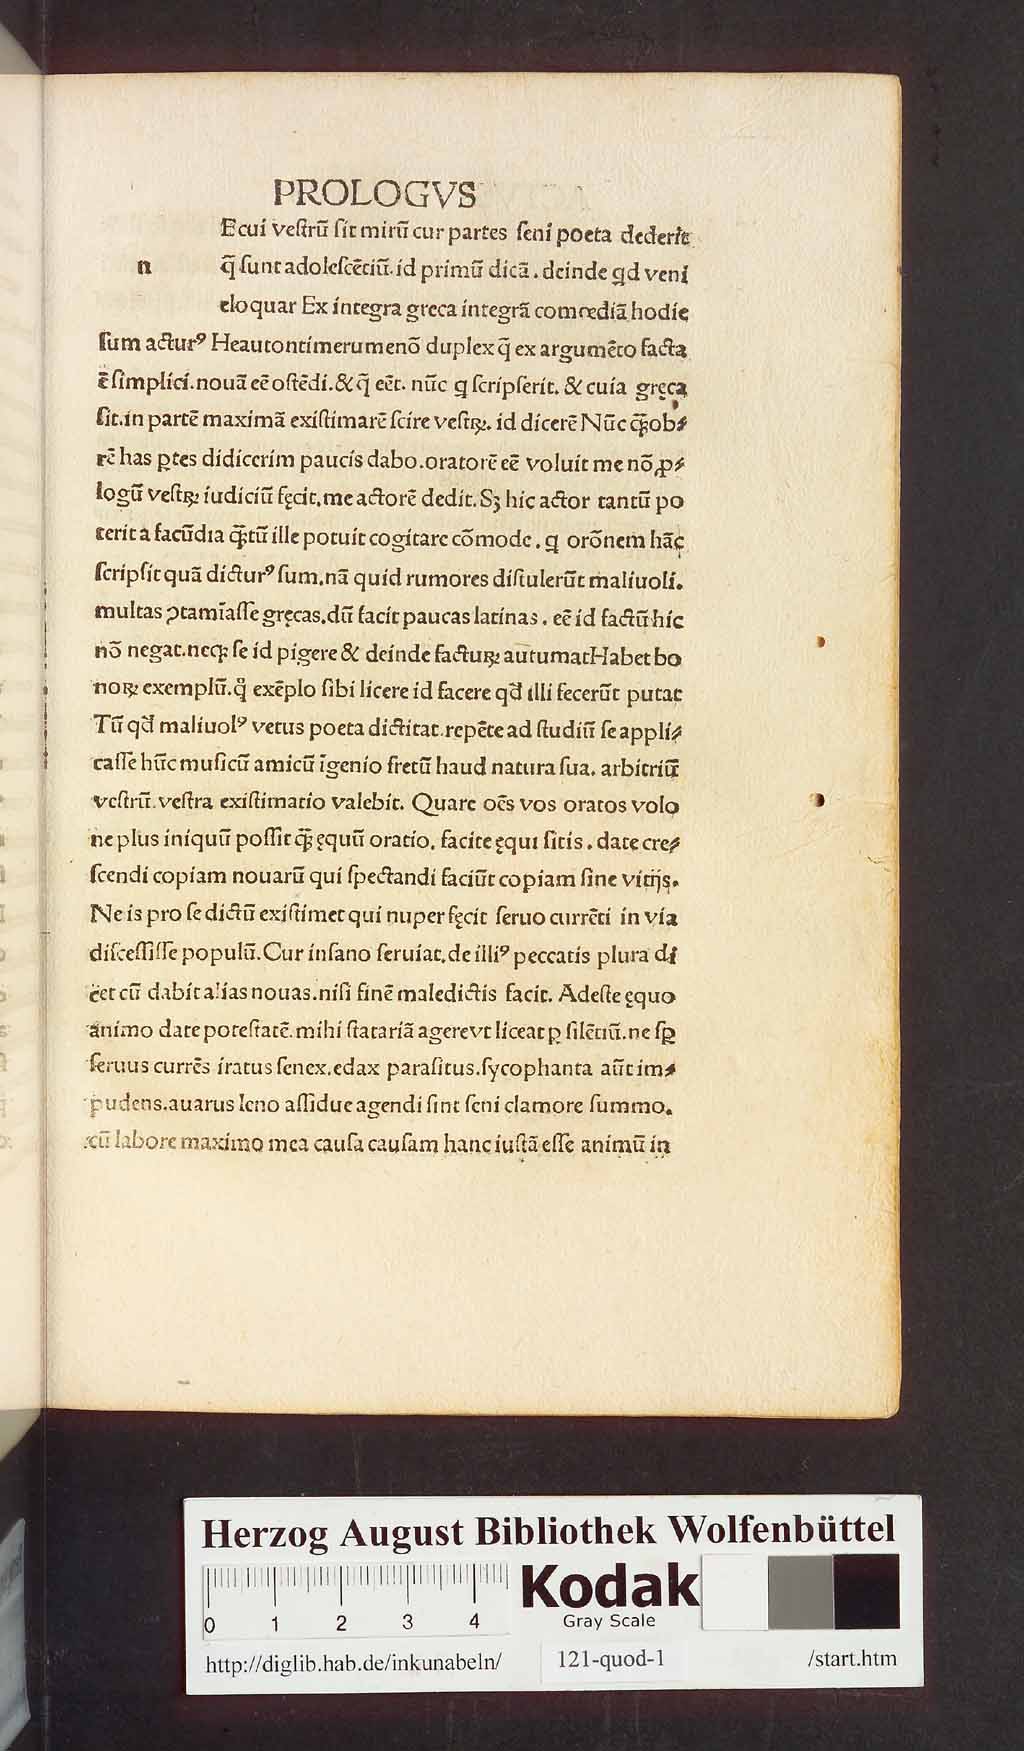 PROLOGVS
Ecui veſtrū ſit mirū cur partes ſeni poeta dederit
n
q̄ ſunt adoleſcētiū. id primū dicā. deinde qd veni
eloquar Ex integra greca integrā comœdiā hodie
ſum acturꝰ Heautontimerumenō duplex q̄ ex argumēto facta
ē ſimplici. nouā eē oſtēdi. & q̄ eēt. nūc q ſcripſerit. & cuia gręca
ſit. in partē maximā exiſtimarē ſcire veſtꝝ. id dicerē Nūc q̄̄ob⸗
rē has ꝑtes didicerim paucis dabo. oratorē eē voluit me nō ꝓ⸗
logū veſtꝝ iudiciū fęcit. me actorē dedit. Sꝫ hic actor tantū po
terit a facūdia q̄̄tū ille potuit cogitare cōmode. q orōnem hāc
ſcripſit quā dicturꝰ ſum. nā quid rumores diſtulerūt maliuoli.
multas ꝯtamīaſſe gręcas. dū facit paucas latinas. eē id factū hic
nō negat. neqꝫ ſe id pigere & deinde factuꝝ autumat Habet bo
noꝝ exemplū. qͦ exēplo ſibi licere id facere qd̄ illi fecerūt putat
Tū qd̄ maliuolꝰ vetus poeta dictitat. repēte ad ſtudiū ſe appli⸗
caſſē hūc muſicū amicū īgenio fretū haud natura ſua. arbitriū
veſtrū. veſtra exiſtimatio valebit. Quare oēs vos oratos volo
ne plus iniquū poſſit q̄̄ ęquū oratio. facite ęqui ſitis. date cre⸗
ſcendi copiam nouarū qui ſpectandi faciūt copiam ſine vitijs.
Ne is pro ſe dictū exiſtimet qui nuper fęcit ſeruo currēti in via
diſceſſiſſe populū. Cur inſano ſeruiat. de illiꝰ peccatis plura di
cet cū dabit alias nouas. niſi finē maledictis facit. Adeſte ęquo
animo date poteſtatē. mihi ſtatariā agere vt liceat ꝑ ſilētiū. ne ſꝑ
ſeruus currēs iratus ſenex. edax paraſitus. ſycophanta aūt im⸗
pudens. auarus leno aſſidue agendi ſint ſeni clamore ſummo.
cū labore maximo mea cauſa cauſam hanc iuſtā eſſe animū in
Herzog August Bibliothek Wolfenbüttel
0 1 2 3 4
Kodak
Gray Scale
http://diglib.hab.de/inkunabeln/ 121-quod-1 /start.htm